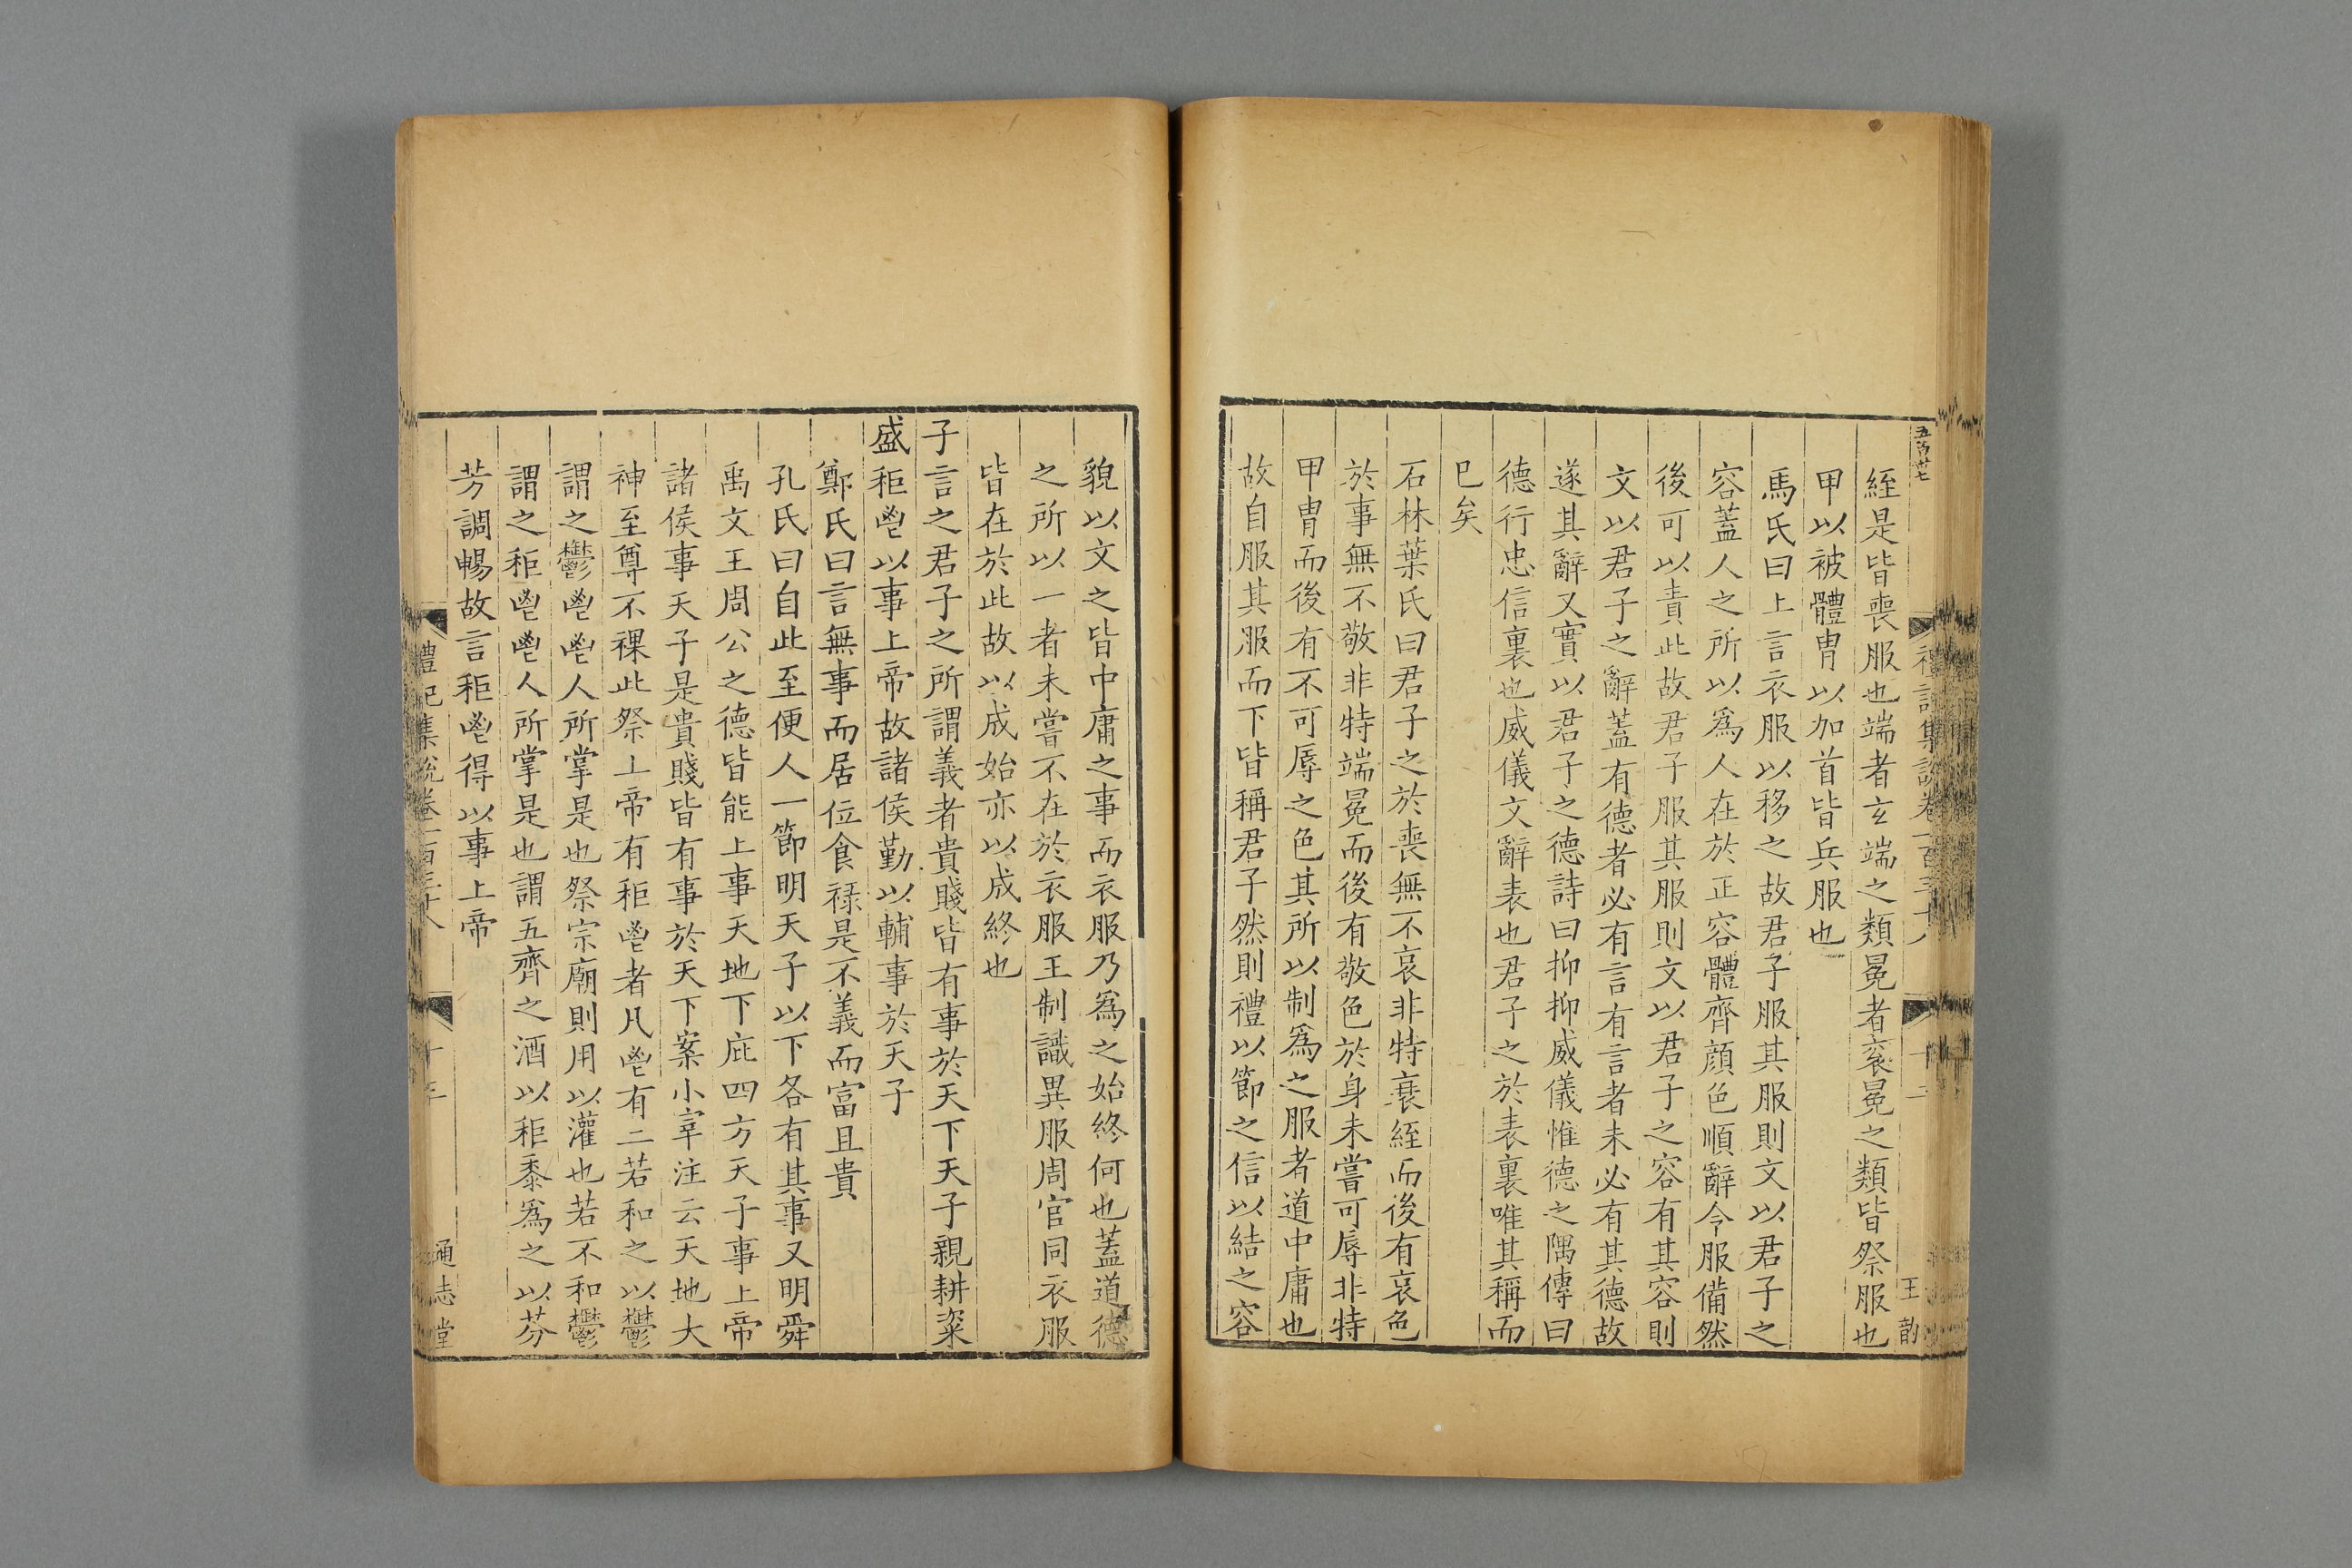 五百卅七
絰是皆喪服也端者玄端之類冕者衮冕之類皆祭服也
甲以被體胄以加首皆兵服也
馬氏曰上言衣服以移之故君子服其服則文以君子之
容蓋人之所以爲人在於正容體齊顔色順辭令服備然
後可以責此故君子服其服則文以君子之容有其容則
文以君子之辭蓋有德者必有言有言者未必有其德故
遂其辭又實以君子之德詩曰抑抑威儀惟德之隅傳曰
德行忠信裏也威儀文辭表也君子之於表裏唯其稱而
巳矣
石林葉氏曰君子之於喪無不哀非特衰絰而後有哀色
於事無不敬非特端冕而後有敬色於身未嘗可辱非特
甲胄而後有不可辱之色其所以制爲之服者道中庸也
故自服其服而下皆稱君子然則禮以節之信以結之容
貌以文之皆中庸之事而衣服乃爲之始終何也蓋道德
之所以一者未嘗不在於衣服王制識異服周官同衣服
皆在於此故以成始亦以成終也
子言之君子之所謂義者貴賤皆有事於天下天子親耕粢
盛秬鬯以事上帝故諸侯勤以輔事於天子
鄭氏曰言無事而居位食祿是不義而富且貴
孔氏曰自此至便人一節明天子以下各有其事又明舜
禹文王周公之德皆能上事天地下庇四方天子事上帝
諸侯事天子是貴賤皆有事於天下案小宰注云天地大
神至尊不祼此祭上帝有秬鬯者凡鬯有二若和之以鬱
謂之鬱鬯鬯人所掌是也祭宗廟則用以灌也若不和鬱
謂之秬鬯鬯人所掌是也謂五齊之酒以秬黍爲之以芬
芳調暢故言秬鬯得以事上帝
禮記集說卷一百三十八
通志堂